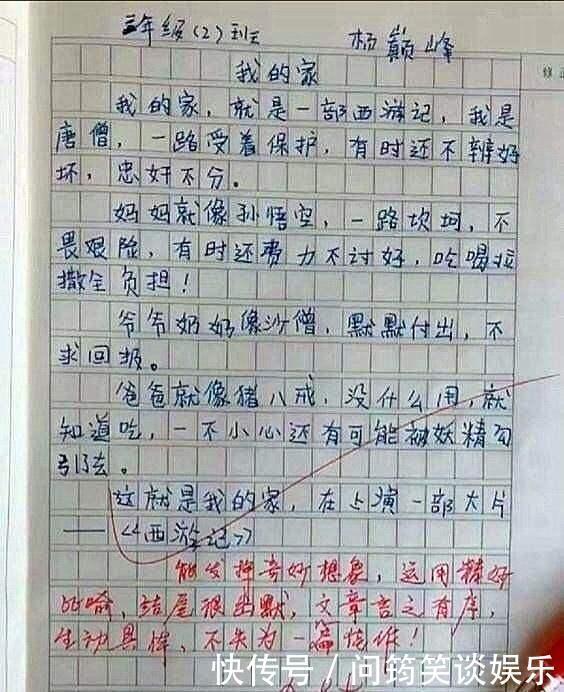 三年级(2)班 杨巅峰
我的家
修正
我的家，就是一部西游记，我是
唐僧，一路受着保护，有时还不辨好
坏，忠奸不分。
妈妈就像孙悟空，一路坎坷，不
畏艰险，有时还费力不讨好，吃喝拉
撒全负担！
爷爷奶奶像沙僧，默默付出，不
求回报。
爸爸就像猪八戒，没什么用，就
知道吃，一不小心还有可能被妖精勾
引去。
这就是我的家，在上演一部大片
——《西游记》
能发挥奇妙想象，运用精妙
比喻，结尾很幽默，文章言之有序，
生动具体，不失为一篇佳作！
快传号 / 问筠笑谈娱乐